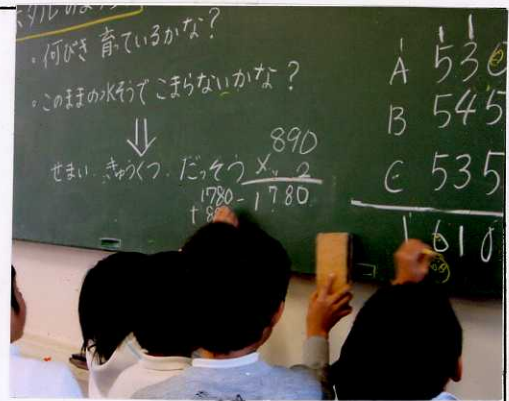 ・何びき育っているかな?
・このままの水そうでこまらないかな?
⇓
せまい きゅうくつ だっそう
890
× 2
1780
1780
+ 8
A 530
B 545
C 535
1610